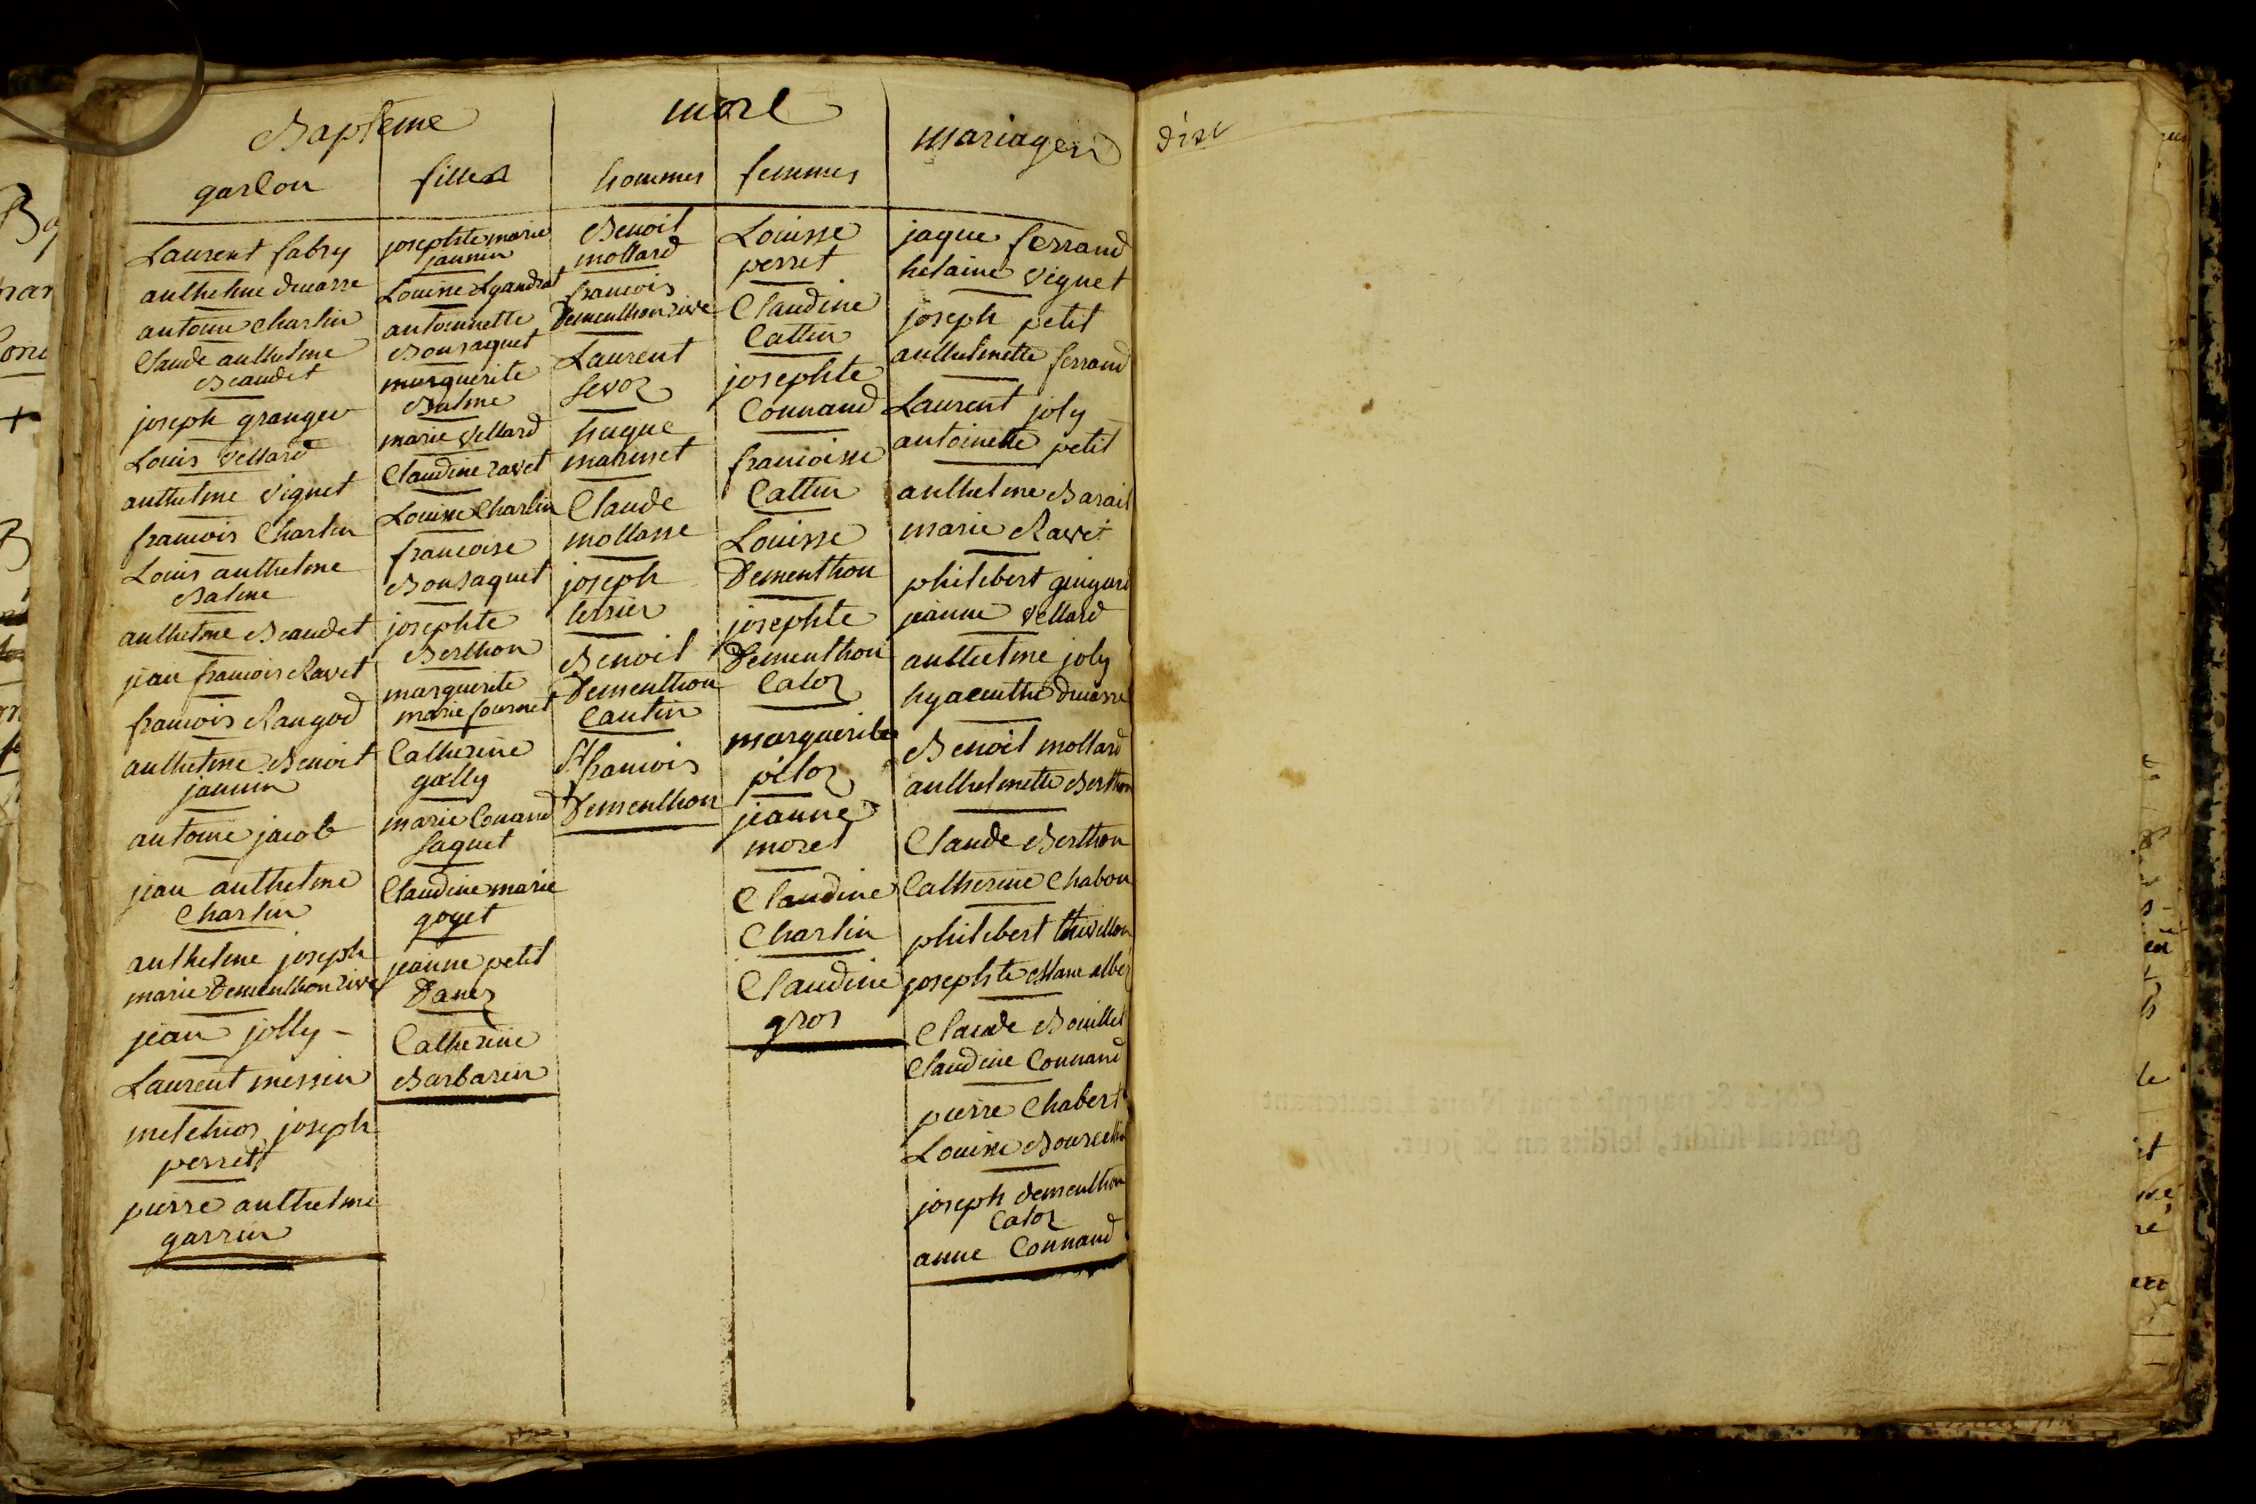 Bapteme
mort
mariages
garcon
filles
hommes
femmes
Laurent fabry
anthelme ducarre
antoine Charlin
Claude anthelme
Beaudet
joseph granger
Louis Vellard
anthelme Vignet
francois Charlin
Louis anthelme
Balme
anthelme Beaudet
jean francois Ravet
francois Rangod
anthelme Benoit
jannin
antoine jacob
jean anthelme
Charlin
anthelme joseph
marie Dementhon rive
jean jolly
Laurent messin
melchior joseph
perret
pierre anthelme
garrin
josephte marie
jannin
Louise
antoinnette
Bonsaquet
marguerite
Balme
marie Vellard
Claudine ravet
Louise Charlin
francoise
Bonsaquet
josephte
Berthon
marguerite
marie fournet
Catherine
golly
marie Conand
saquet
Claudine marie
goyet
jeanne petit
Danez
Catherine
Barbarin
Benoit
mollard
francois
Dementhon rive
Laurent
sevoz
hugue
marinet
Claude
mollasse
joseph
terrier
Benoit
Dementhon
Cantin
St francois
Dementhon
Louisse
perret
Claudine
Cattin
josephte
Connand
francoisse
Cattin
Louisse
Dementhon
josephte
Dementhon
Caloz
marguerite
piloz
jeanne
morel
Claudine
Charlin
Claudine
gros
jaque ferrand
helaine Vignet
joseph petit
anthelmette ferrand
Laurent joly
antoinette petit
anthelme Barail
marie Ravet
philibert guigard
jeanne Vellard
anthelme joly
hyacinthe ducarre
Benoit mollard
anthelmette Berthon
Claude Berthon
Catherine Chabon
philibert thivillon
josephte
Claude Bouillet
Claudine Connand
pierre Chabert
Louise
joseph dementhon
Caloz
anne Connand